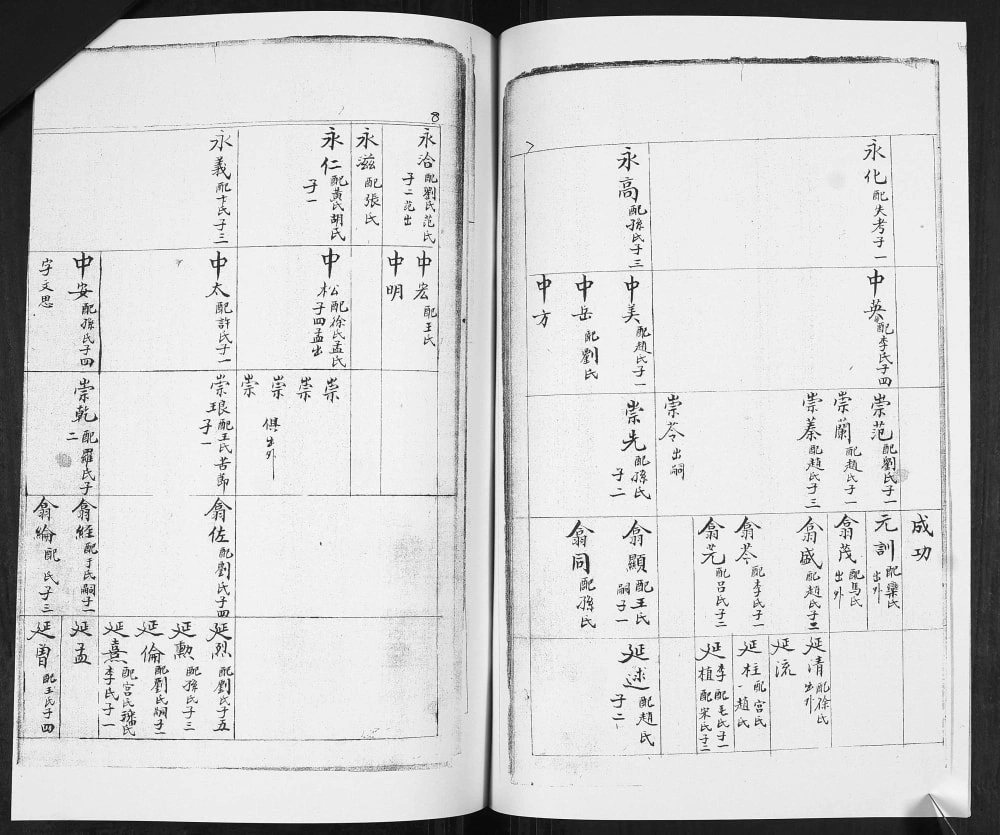 7
永化 配失考子一
永高 配孫氏子三
中英 配李氏子四
中美 配趙氏子一
中岳 配劉氏
中方
崇范 配劉氏子一
崇蘭 配趙氏子一
崇蓁 配趙氏子三
崇芩 出嗣
崇先 配孫氏子二
成功
元訓 配欒氏 出外
翕茂 配馬氏 出外
翕盛 配趙氏子二
翕芩 配李氏子一
翕芫 配呂氏子二
翕顯 配王氏嗣子一
翕同 配孫氏
延清 配徐氏 出外
延流
延柱 配宮氏、趙氏
延李 配毛氏子一
植 配宋氏子二
延述 配趙氏子二
8
永洽 配劉氏范氏子二范出
永滋 配張氏
永仁 配黃氏胡氏子一
永義 配于氏子三
中宏 配王氏
中明
中松 配徐氏孟氏子四孟出
中太 配許氏子一
中安 配孫氏子四
字文思
崇
崇
崇
崇
俱出外
崇琅 配王氏苦節子一
崇乾 配羅氏子二
翕佐 配劉氏子四
翕經 配于氏嗣子一
翕綸 配 氏子三
延烈 配劉氏子五
延勲 配孫氏子三
延倫 配劉氏嗣子一
延熹 配宮氏 李氏子一
延孟
延曾 配王氏子四